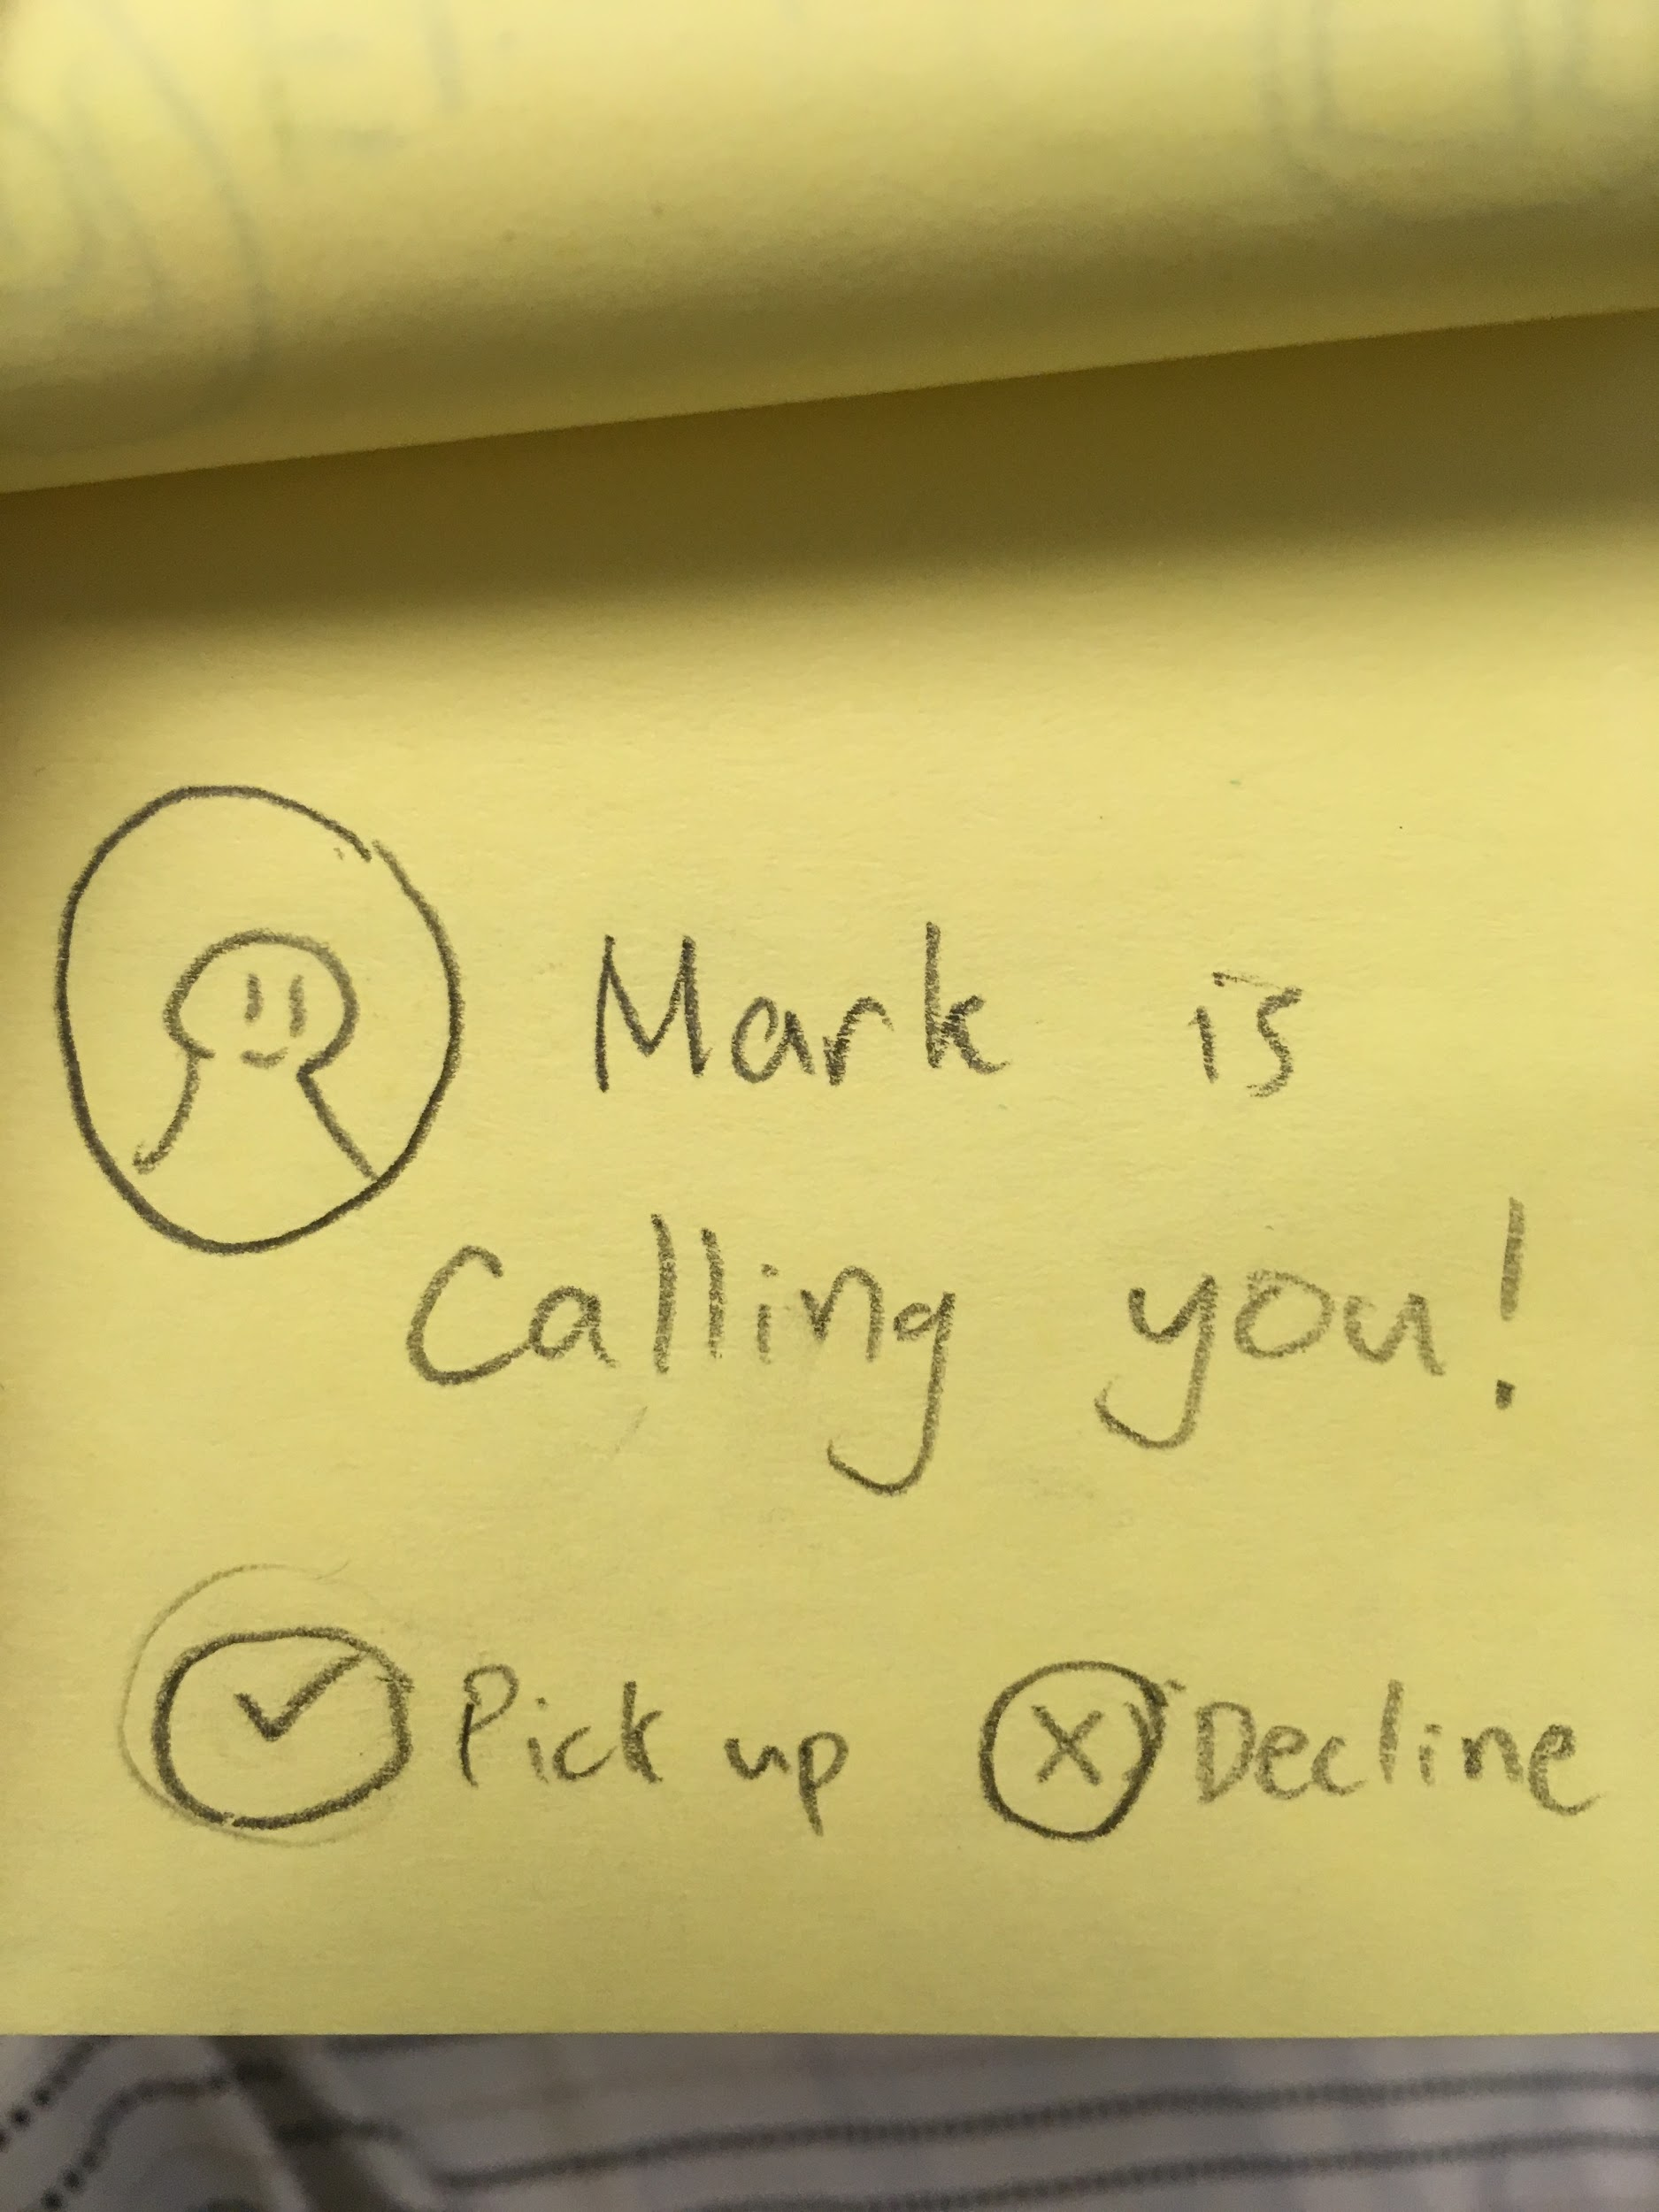 Mark is
Calling you!
Pick up Decline